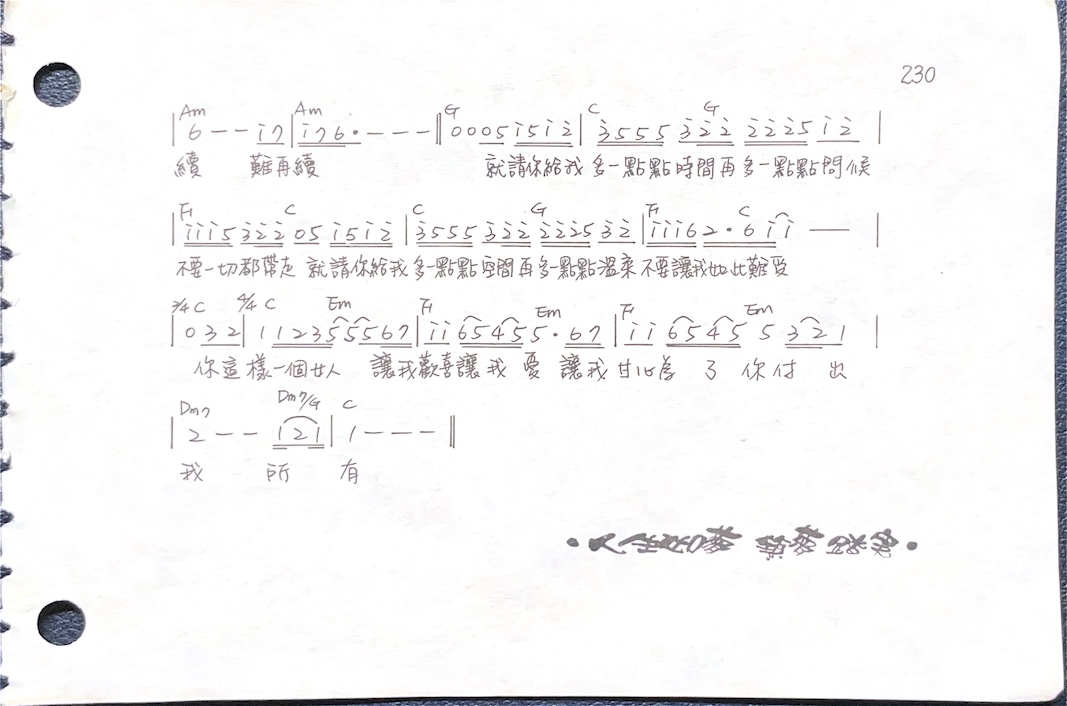 230
Am Am G C G
|6 - - i 7|i 7 6 • - - -‖0 0 0 5 i 5 i 2̇|3̇ 5 5 5 3̇ 2̇ 2̇ 2̇ 2̇ 2̇ 5 i 2̇|
續 難再續 就請你給我 多一點點時間再多一點點問候
F C C G F C
|i i i 5 3̇ 2̇ 2̇ 0 5 i 5 i 2̇|3̇ 5 5 5 3̇ 2̇ 2̇ 2̇ 2̇ 2̇ 5 3̇ 2̇|i i i 6 2 • 6 i i —|
不要一切都帶走 就請你給我多一點點空間再多一點點溫柔不要讓我如此難受
3/4 C 4/4 C Em F Em F Em
|0 3 2|1 1 2 3 5 5 5 6 7|i i 6 5 4 5 5 • 6 7|i i 6 5 4 5 5 3 2 1|
你這樣一個女人 讓我歡喜讓我憂 讓我甘心為了你付出
Dm7 Dm7/G C
|2 - - 1 2 1|1 - - -‖
我 所 有